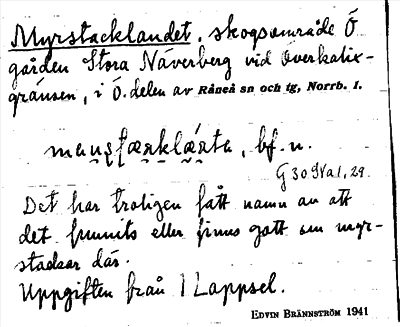 Myrstacklandet, skogsområde Ö
gården Stora Näverberg vid Överkalix-
gränsen, i Ö. delen av Råneå sn och tg, Norrb. l.
bf. n.
G 30
Det har troligen fått namn av att
det funnits eller finns gott om myr-
stackar där.
Uppgiften från I Lappsel.
EDVIN BRÄNNSTRÖM 1941